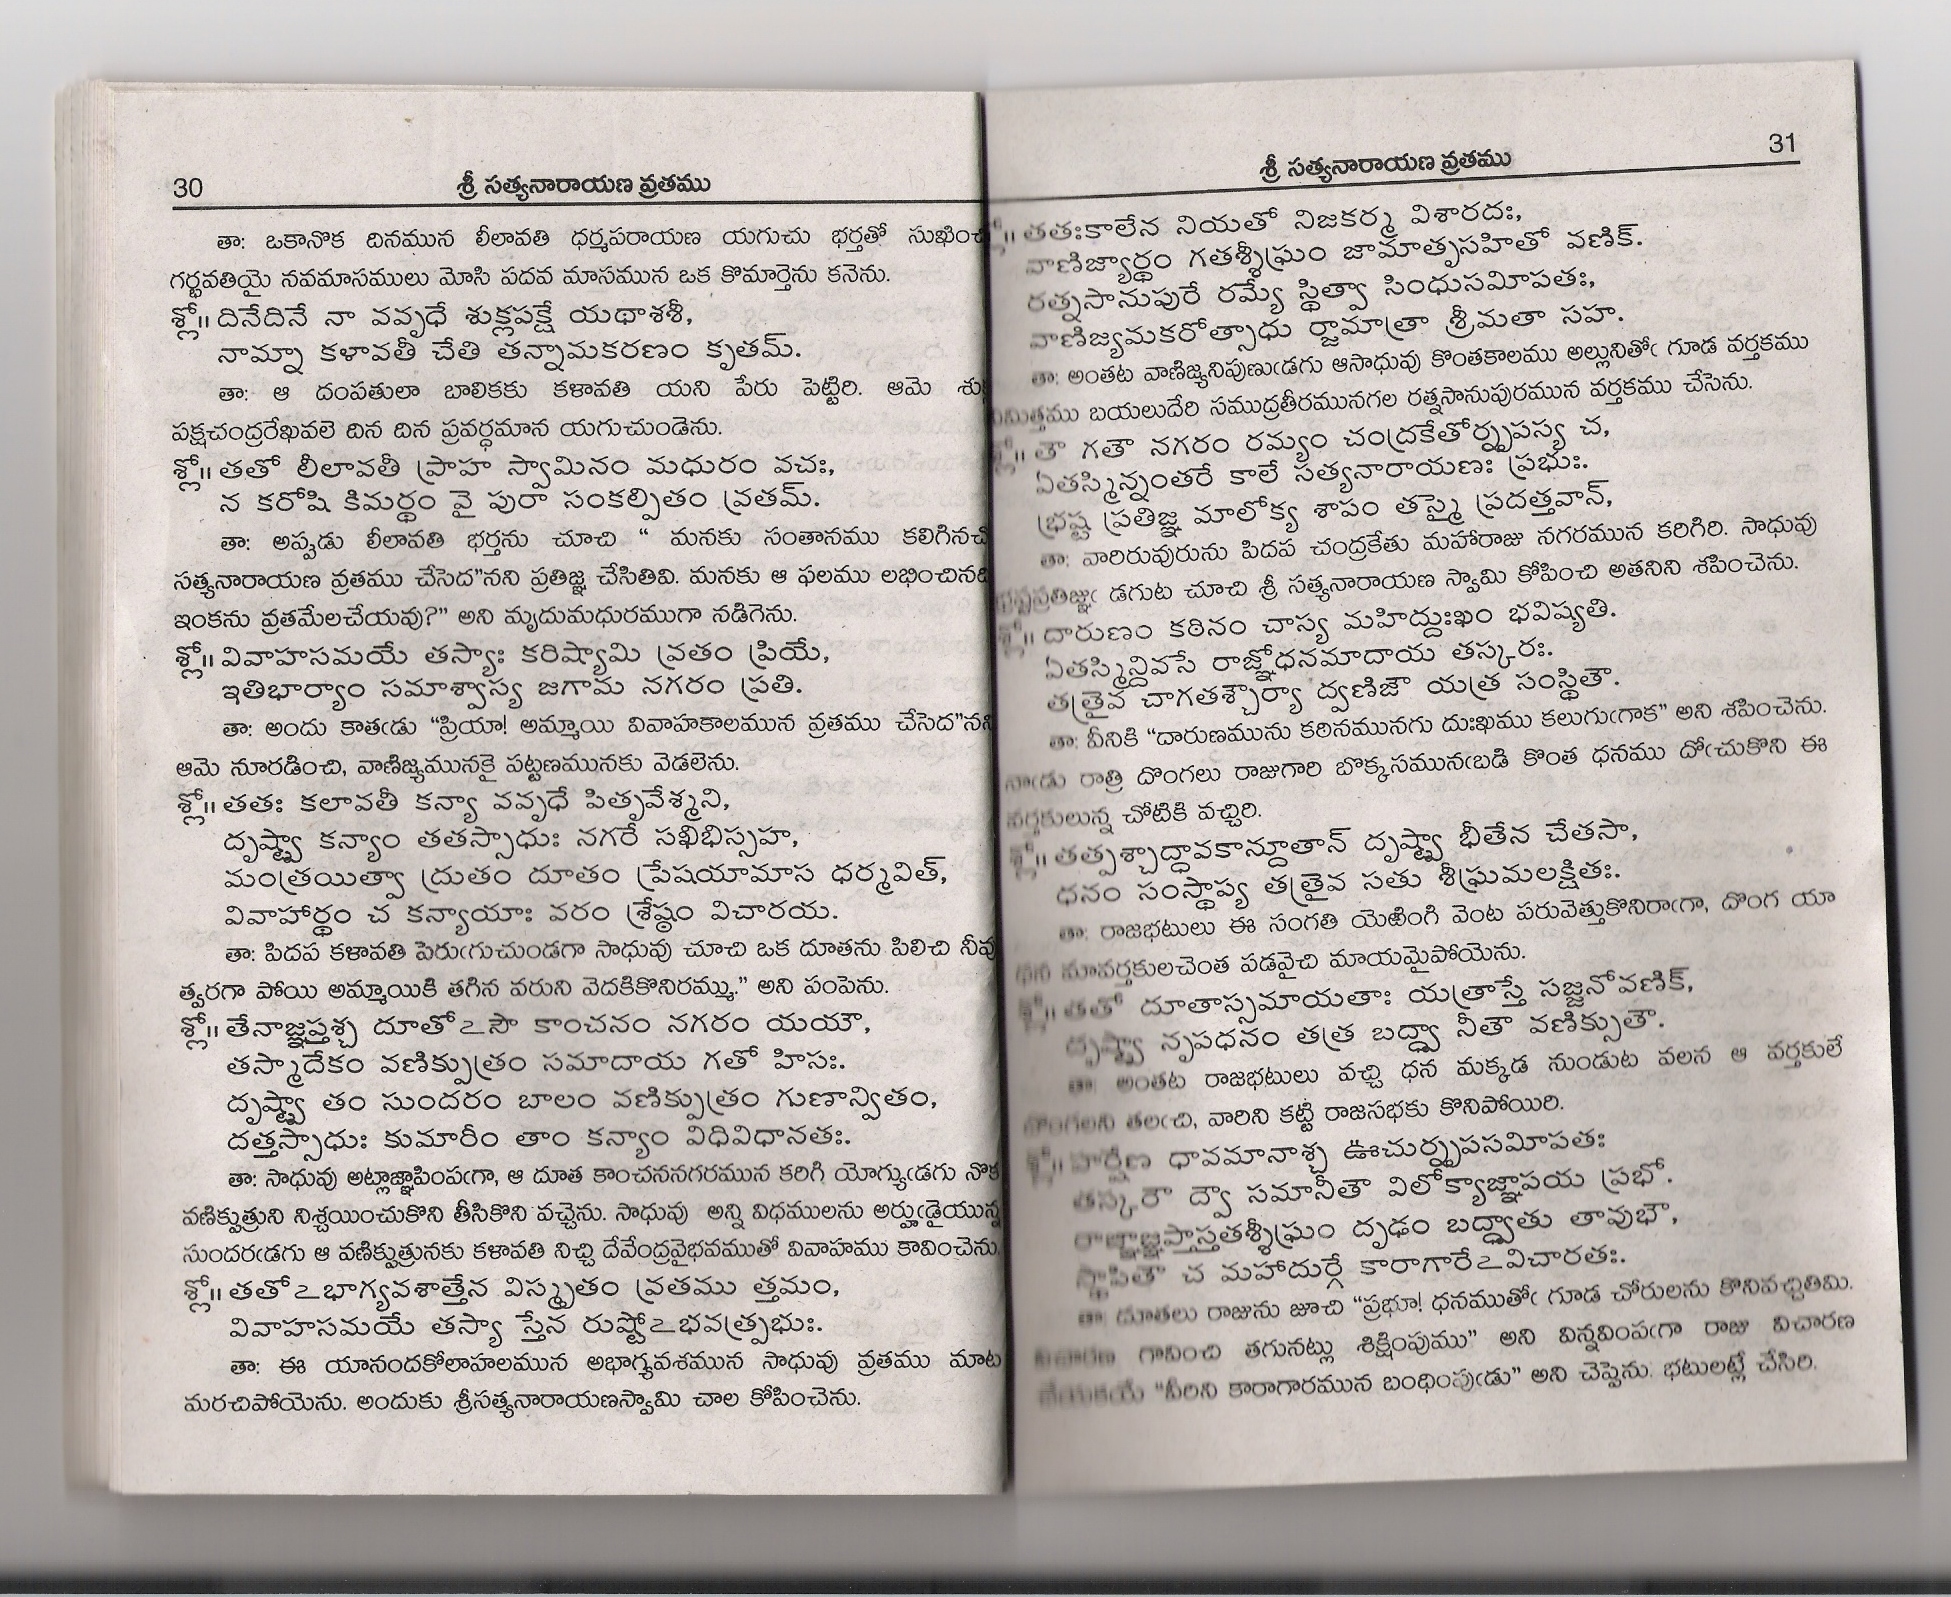 30
శ్రీ సత్యనారాయణ వ్రతము
తా: ఒకానొక దినమున లీలావతి ధర్మపరాయణ యగుచు భర్తతో సుఖించి
గర్భవతియై నవమాసములు మోసి పదవ మాసమున ఒక కొమార్తెను కనెను.
శ్లో॥ దినేదినే నా వవృధే శుక్లపక్షే యథాశశీ,
నామ్నా కళావతీ చేతి తన్నామకరణం కృతమ్.
తా: ఆ దంపతులా బాలికకు కళావతి యని పేరు పెట్టిరి. ఆమె శుక్ల
పక్షచంద్రరేఖవలె దిన దిన ప్రవర్ధమాన యగుచుండెను.
శ్లో॥ తతో లీలావతీ ప్రాహ స్వామినం మధురం వచః,
న కరోషి కిమర్థం వై పురా సంకల్పితం వ్రతమ్.
తా: అప్పడు లీలావతి భర్తను చూచి “ మనకు సంతానము కలిగినచో
సత్యనారాయణ వ్రతము చేసెద”నని ప్రతిజ్ఞ చేసితివి. మనకు ఆ ఫలము లభించినది
ఇంకను వ్రతమేలచేయవు?” అని మృదుమధురముగా నడిగెను.
శ్లో॥ వివాహసమయే తస్యాః కరిష్యామి వ్రతం ప్రియే,
ఇతిభార్యాం సమాశ్వాస్య జగామ నగరం ప్రతి.
తా: అందు కాతఁడు “ప్రియా! అమ్మాయి వివాహకాలమున వ్రతము చేసెద”నని
ఆమె నూరడించి, వాణిజ్యమునకై పట్టణమునకు వెడలెను.
శ్లో॥ తతః కలావతీ కన్యా వవృధే పితృవేశ్మని,
దృష్ట్వా కన్యాం తతస్సాధుః నగరే సఖిభిస్సహ,
మంత్రయిత్వా ద్రుతం దూతం ప్రేషయామాస ధర్మవిత్,
వివాహార్థం చ కన్యాయాః వరం శ్రేష్ఠం విచారయ.
తా: పిదప కళావతి పెరుఁగుచుండగా సాధువు చూచి ఒక దూతను పిలిచి నీవు
త్వరగా పోయి అమ్మాయికి తగిన వరుని వెదకికొనిరమ్ము.” అని పంపెను.
శ్లో॥ తేనాజ్ఞప్తశ్చ దూతోఽసౌ కాంచనం నగరం యయౌ,
తస్మాదేకం వణిక్పుత్రం సమాదాయ గతో హిసః.
దృష్ట్వా తం సుందరం బాలం వణిక్పుత్రం గుణాన్వితం,
దత్తస్సాధుః కుమారీం తాం కన్యాం విధివిధానతః.
తా: సాధువు అట్లాజ్ఞాపింపఁగా, ఆ దూత కాంచననగరమున కరిగి యోగ్యుఁడగు నొక
వణిక్పుత్రుని నిశ్చయించుకొని తీసికొని వచ్చెను. సాధువు అన్ని విధములను అర్హుఁడైయున్న
సుందరఁడగు ఆ వణిక్పుత్రునకు కళావతి నిచ్చి దేవేంద్రవైభవముతో వివాహము కావించెను.
శ్లో॥ తతోఽభాగ్యవశాత్తేన విస్మృతం వ్రతము త్తమం,
వివాహసమయే తస్యా స్తేన రుష్టోఽభవత్ప్రభుః.
తా: ఈ యానందకోలాహలమున అభాగ్యవశమున సాధువు వ్రతము మాట
మరచిపోయెను. అందుకు శ్రీసత్యనారాయణస్వామి చాల కోపించెను.
31
శ్రీ సత్యనారాయణ వ్రతము
తతఃకాలేన నియతో నిజకర్మ విశారదః,
వాణిజ్యార్థం గతశ్శీఘ్రం జామాతృసహితో వణిక్.
రత్నసానుపురే రమ్యే స్థిత్వా సింధుసమీపతః,
వాణిజ్యమకరోత్సాధు ర్జామాత్రా శ్రీమతా సహ.
తా: అంతట వాణిజ్యనిపుణుఁడగు ఆసాధువు కొంతకాలము అల్లునితోఁ గూడ వర్తకము
నిమిత్తము బయలుదేరి సముద్రతీరమునగల రత్నసానుపురమున వర్తకము చేసెను.
శ్లో॥ తౌ గతౌ నగరం రమ్యం చంద్రకేతోర్నృపస్య చ,
ఏతస్మిన్నంతరే కాలే సత్యనారాయణః ప్రభుః.
భ్రష్ట ప్రతిజ్ఞ మాలోక్య శాపం తస్మై ప్రదత్తవాన్,
తా: వారిరువురును పిదప చంద్రకేతు మహారాజు నగరమున కరిగిరి. సాధువు
భ్రష్టప్రతిజ్ఞుఁ డగుట చూచి శ్రీ సత్యనారాయణ స్వామి కోపించి అతనిని శపించెను.
శ్లో॥ దారుణం కఠినం చాస్య మహిద్దుఃఖం భవిష్యతి.
ఏతస్మిన్దివసే రాజ్ఞోధనమాదాయ తస్కరః.
తత్రైవ చాగతశ్చౌర్యా ద్వణిజౌ యత్ర సంస్థితౌ.
తా: వీనికి “దారుణమును కఠినమునగు దుఃఖము కలుగుఁగాక” అని శపించెను.
నాఁడు రాత్రి దొంగలు రాజుగారి బొక్కసమునఁబడి కొంత ధనము దోఁచుకొని ఈ
వర్తకులున్న చోటికి వచ్చిరి.
శ్లో॥ తత్పశ్చాద్ధావకాన్దూతాన్ దృష్ట్వా భీతేన చేతసా,
ధనం సంస్థాప్య తత్రైవ సతు శీఘ్రమలక్షితః.
తా: రాజభటులు ఈ సంగతి యెఱింగి వెంట పరువెత్తుకొనిరాఁగా, దొంగ యా
ధన మావర్తకులచెంత పడవైచి మాయమైపోయెను.
శ్లో॥ తతో దూతాస్సమాయతాః యత్రాస్తే సజ్జనోవణిక్,
దృష్ట్వా నృపధనం తత్ర బద్ధ్వా నీతౌ వణిక్సుతౌ.
తా: అంతట రాజభటులు వచ్చి ధన మక్కడ నుండుట వలన ఆ వర్తకులే
దొంగలని తలఁచి, వారిని కట్టి రాజసభకు కొనిపోయిరి.
శ్లో॥ హర్షేణ ధావమానాశ్చ ఊచుర్నృపసమీపతః
తస్కరౌ ద్వౌ సమానీతౌ విలోక్యాజ్ఞాపయ ప్రభో.
రాజ్ఞాజ్ఞప్తాస్తతశ్శీఘ్రం దృఢం బద్ధ్వాతు తావుభౌ,
స్థాపితౌ చ మహాదుర్గే కారాగారేఽవిచారతః.
తా: దూతలు రాజును జూచి “ప్రభూ! ధనముతోఁ గూడ చోరులను కొనివచ్చితిమి.
విచారణ గావించి తగునట్లు శిక్షింపుము” అని విన్నవింపఁగా రాజు విచారణ
చేయకయే “వీరిని కారాగారమున బంధింపుఁడు” అని చెప్పెను. భటులట్లే చేసిరి.